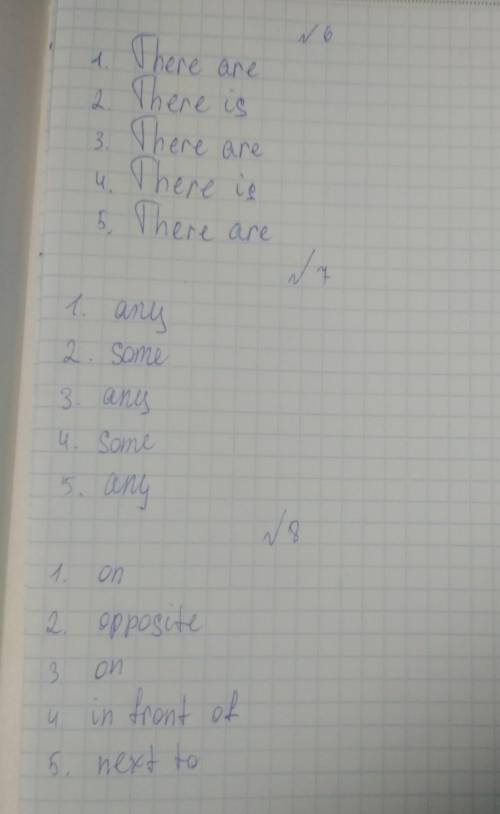 №6
1. There are
2. There is
3. There are
4. There is
5. There are
№7
1. any
2. some
3. any
4. some
5. any
№8
1. on
2. opposite
3 on
4 in front of
5. next to